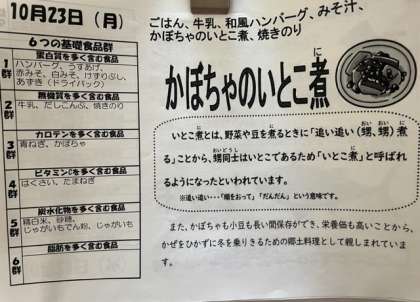 10月23日（月）
6つの基礎食品群
1群
蛋白質を多く含む食品
ハンバーグ、うすあげ、
赤みそ、白みそ、けずりぶし、
あずき（ドライパック）
2群
無機質を多く含む食品
牛乳、だしこんぶ、焼きのり
3群
カロテンを多く含む食品
青ねぎ、かぼちゃ
4群
ビタミンCを多く含む食品
はくさい、たまねぎ
5群
炭水化物を多く含む食品
精白米、砂糖、
じゃがいもでん粉、じゃがいも
6群
脂肪を多く含む食品
ごはん、牛乳、和風ハンバーグ、みそ汁、
かぼちゃのいとこ煮、焼きのり
に
かぼちゃのいとこ煮
に に おいおい おい おい に
いとこ煮とは、野菜や豆を煮るときに「追い追い（甥、甥）煮
おいどうし に
る」ことから、甥同士はいとこであるため「いとこ煮」と呼ばれ
るようになったといわれています。
※追い追い・・・「順をおって」「だんだん」という意味です。
また、かぼちゃも小豆も長い間保存ができ、栄養価も高いことから、
かぜをひかずに冬を乗りきるための郷土料理として親しまれていま
す。